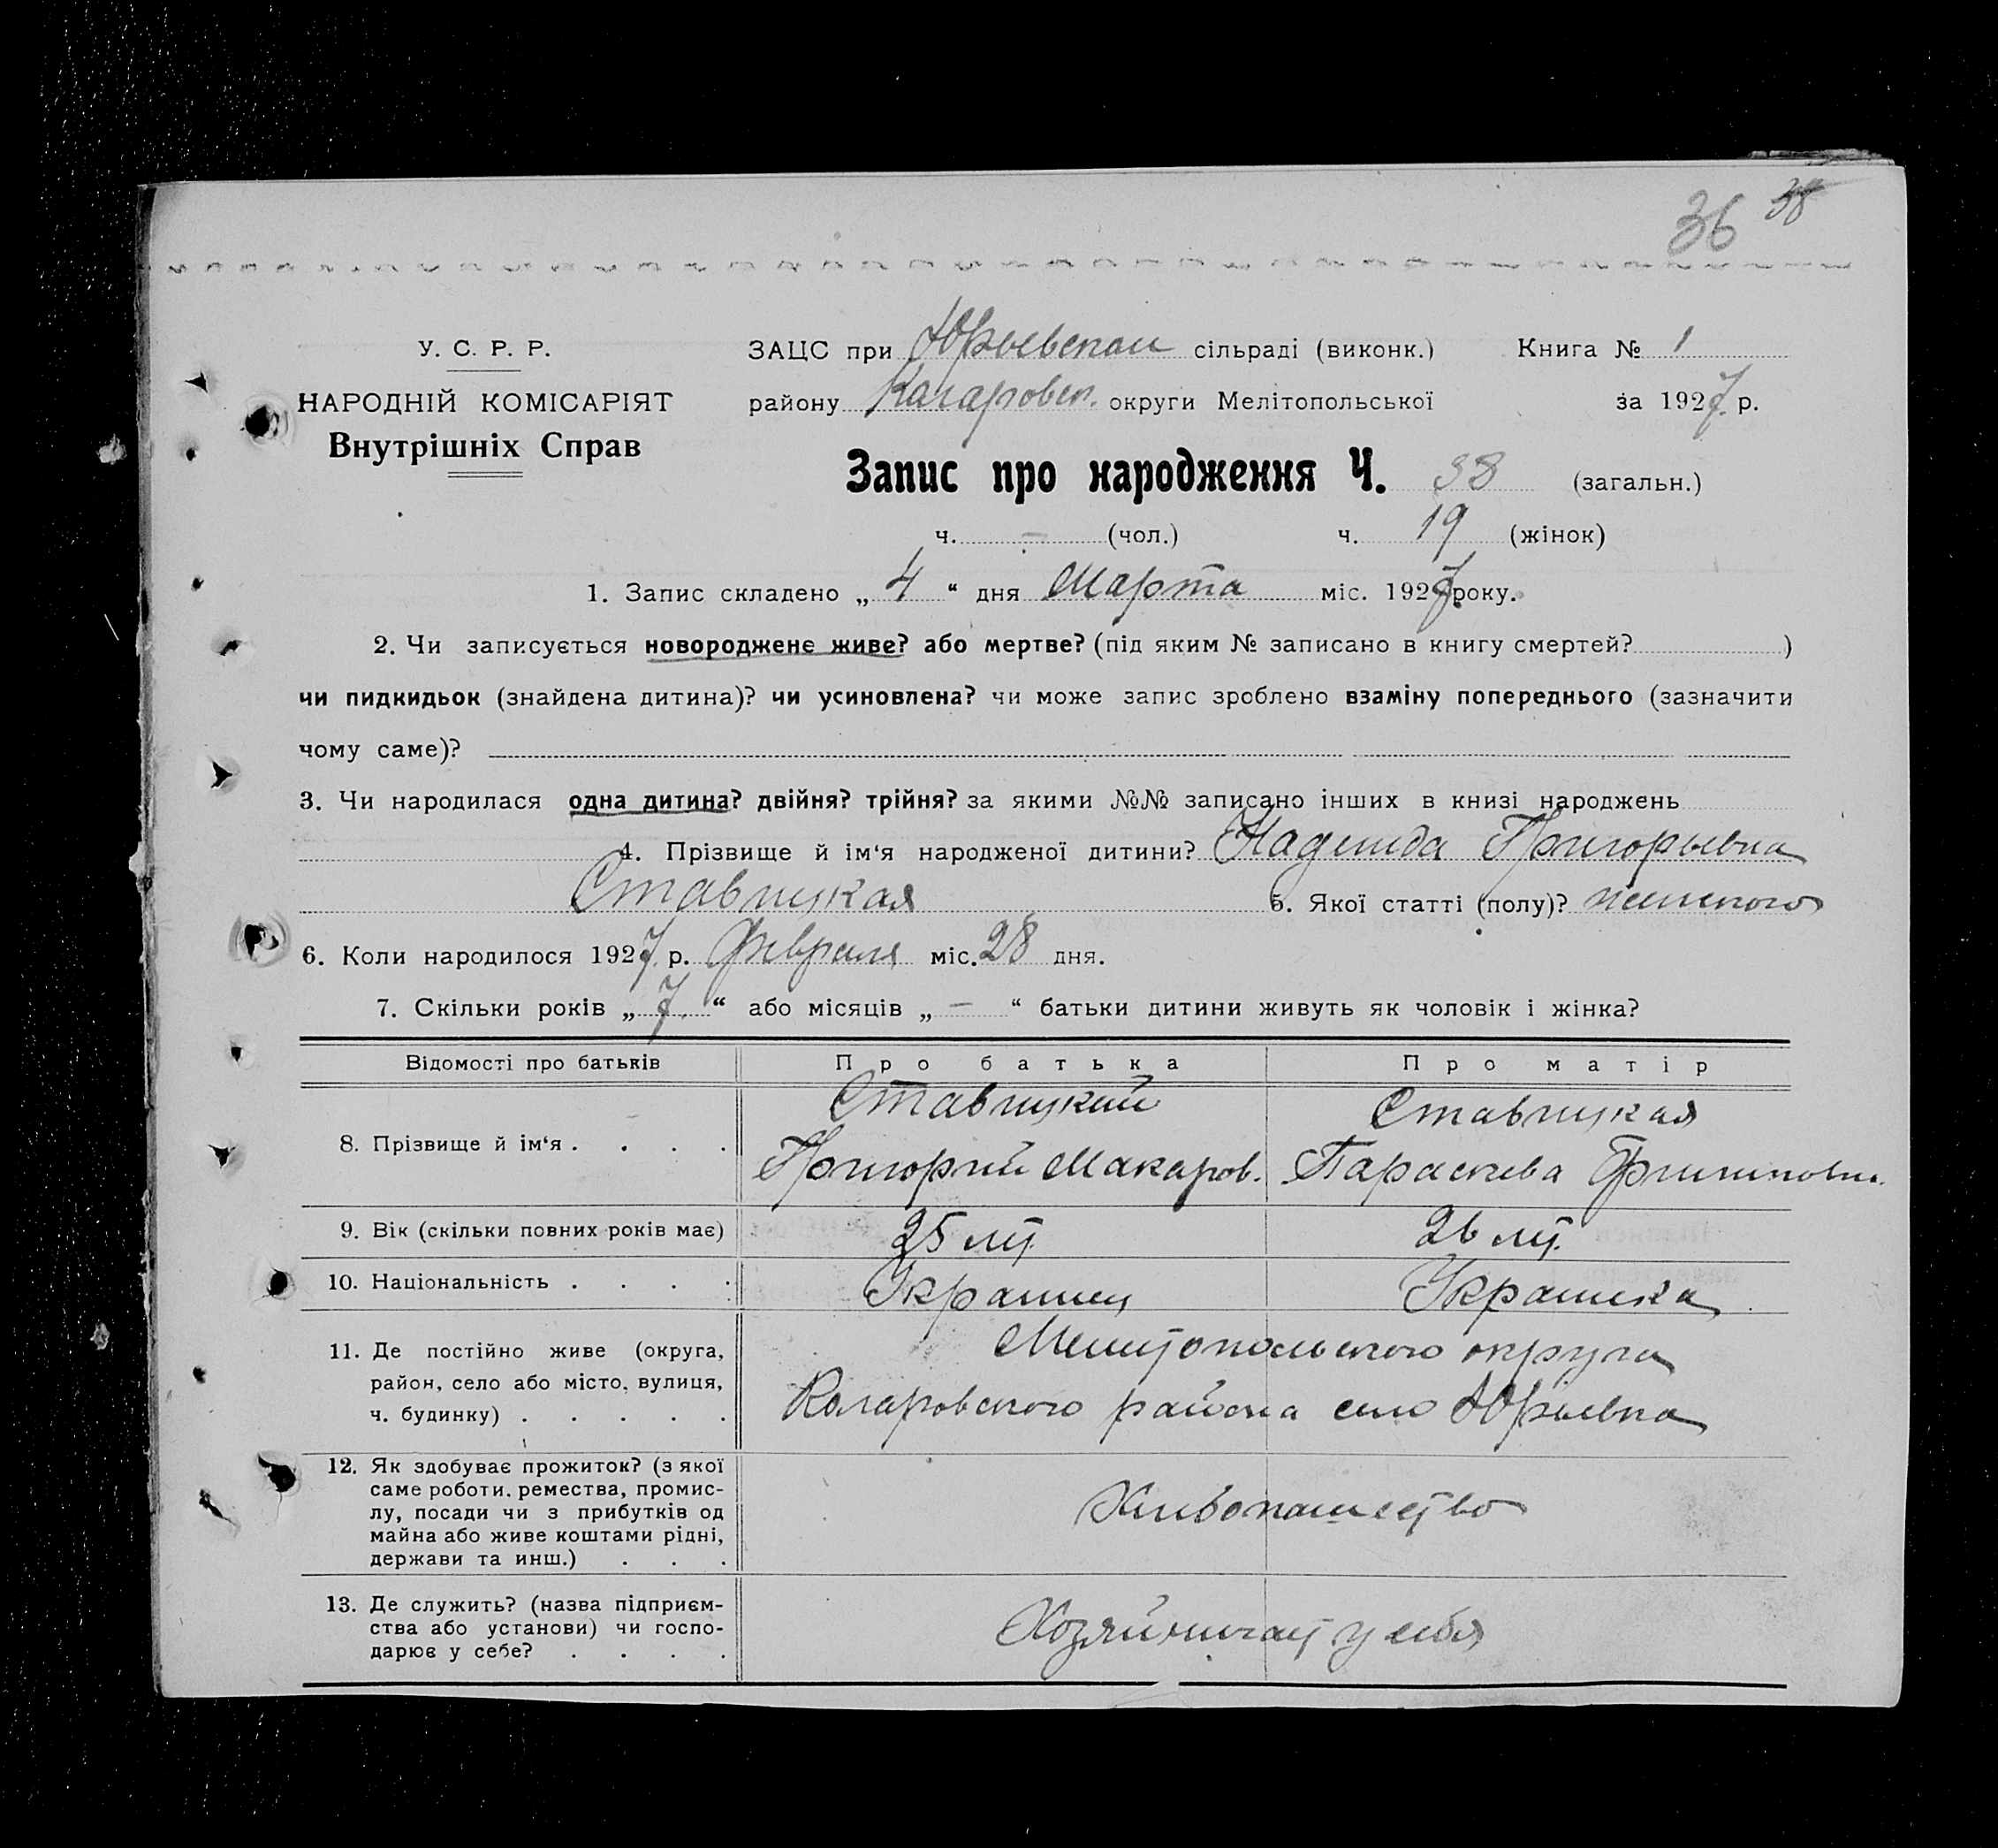 36 38
У. С. Р. Р.
НАРОДНІЙ КОМІСАРІЯТ
Внутрішніх Справ
ЗАЦС при Юрьевской сільраді (виконк.) Книга № 1
району Коларовск. округи Мелітопольської за 1927 р.
Запис про народження Ч. 38 (загальн.)
ч. — (чол.) ч. 19 (жінок)
1. Запис складено „ 4 “ дня Марта міс. 1927 року.
2. Чи записується новороджене живе? або мертве? (під яким № записано в книгу смертей? )
чи пидкидьок (знайдена дитина)? чи усиновлена? чи може запис зроблено взаміну попереднього (зазначити
чому саме)?
3. Чи народилася одна дитина? двійня? трійня? за якими №№ записано інших в книзі народжень
4. Прізвище й ім‘я народженої дитини? Надежда Григорьевна
Ставицкая 5. Якої статті (полу)? женского
6. Коли народилося 1927 р. февраля міс. 28 дня.
7. Скільки років „ 7 “ або місяців „ — “ батьки дитини живуть як чоловік і жінка?
Відомості про батьків Про батька Про матір
8. Прізвище й ім‘я . . . . Ставицкий Ставицкая
Григорий Макаров. Параскева
9. Вік (скільки повних років має) 25 лет 26 лет
10. Національність . . . . Украинец Украинка
11. Де постійно живе (округа, район, село або місто, вулиця, ч. будинку) . . . . . Мелитопольского округа
Коларовского района село Юрьевка
12. Як здобуває прожиток? (з якої
саме роботи, ремества, промис-
лу, посади чи з прибутків од
майна або живе коштами рідні,
держави та инш.) . . .
Хлебопашество
13. Де служить? (назва підприєм-
ства або установи) чи госпо-
дарює у себе? . . . .
Хозяйничают у себя